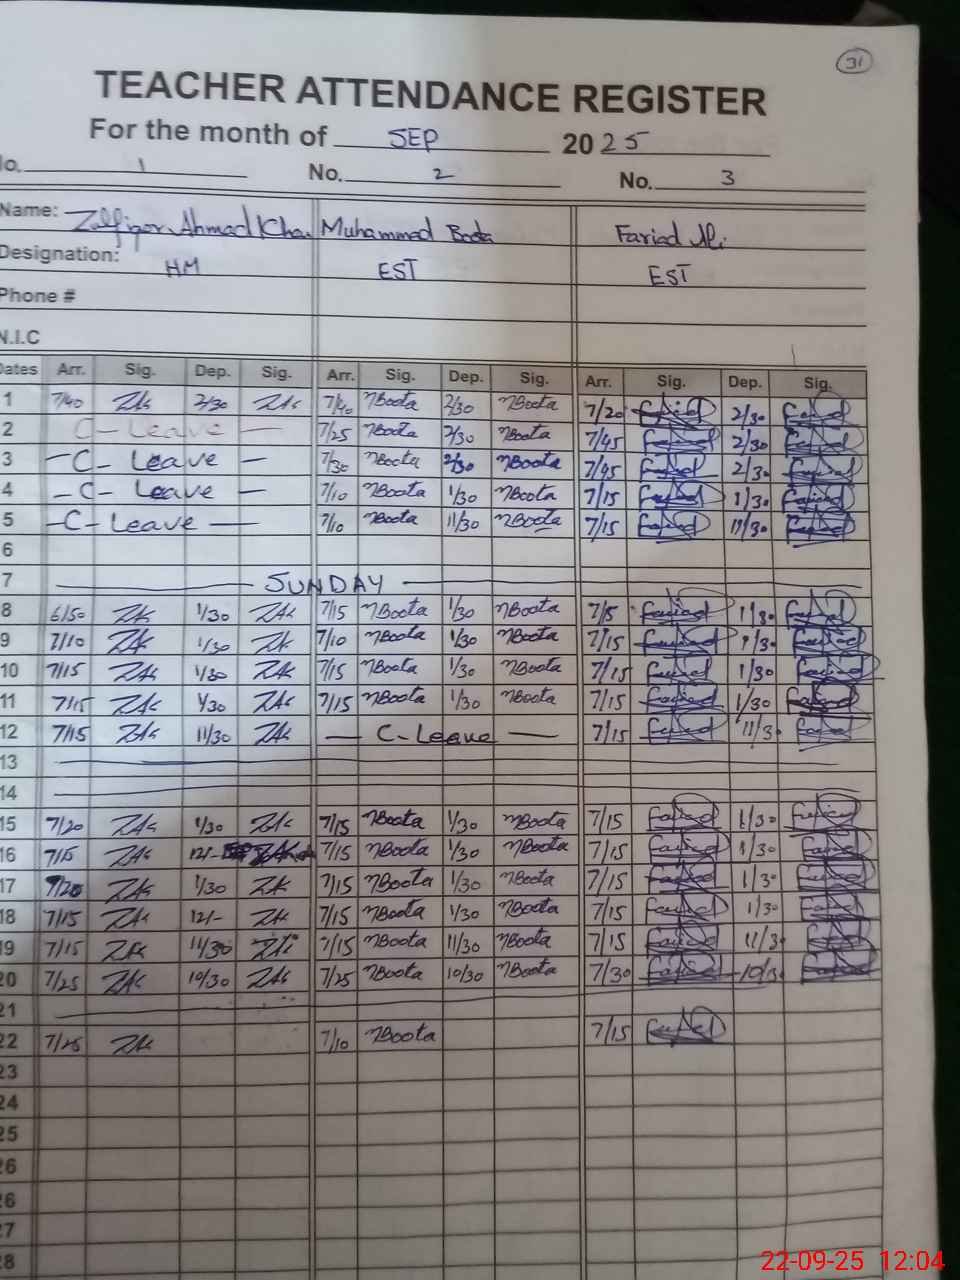 31
TEACHER ATTENDANCE REGISTER
For the month of SEP 2025
No. 1 No. 2 No. 3
Name: Zulfiqar Ahmad Khan Muhammad Boota Fariad Ali
Designation: HM EST EST
Phone #
N.I.C
Dates Arr. Sig. Dep. Sig. Arr. Sig. Dep. Sig. Arr. Sig. Dep. Sig.
1 7/40 ZAK 2/30 ZAK 7/40 MBoota 2/30 MBoota 7/20 Fariad 2/30 Fariad
2 C-Leave — 7/25 MBoota 2/30 MBoota 7/45 Fariad 2/30 Fariad
3 — C- Leave — 7/30 MBoota 2/30 MBoota 7/45 Fariad 2/30 Fariad
4 — C- Leave — 7/10 MBoota 1/30 MBoota 7/15 Fariad 1/30 Fariad
5 — C-Leave — 7/10 MBoota 11/30 MBoota 7/15 Fariad 11/30 Fariad
6
7 — SUNDAY —
8 6/50 ZAK 1/30 ZAK 7/15 MBoota 1/30 MBoota 7/5 Fariad 1/30 Fariad
9 7/10 ZAK 1/30 ZAK 7/10 MBoota 1/30 MBoota 7/15 Fariad 1/30 Fariad
10 7/15 ZAK 1/30 ZAK 7/15 MBoota 1/30 MBoota 7/15 Fariad 1/30 Fariad
11 7/15 ZAK 1/30 ZAK 7/15 MBoota 1/30 MBoota 7/15 Fariad 1/30 Fariad
12 7/15 ZAK 11/30 ZAK — C-Leave — 7/15 Fariad 11/30 Fariad
13
14
15 7/20 ZAK 1/30 ZAK 7/15 MBoota 1/30 MBoota 7/15 Fariad 1/30 Fariad
16 7/15 ZAK 12/- ZAK 7/15 MBoota 1/30 MBoota 7/15 Fariad 1/30 Fariad
17 7/20 ZAK 1/30 ZAK 7/15 MBoota 1/30 MBoota 7/15 Fariad 1/30 Fariad
18 7/15 ZAK 12/- ZAK 7/15 MBoota 1/30 MBoota 7/15 Fariad 1/30 Fariad
19 7/15 ZAK 11/30 ZAK 7/15 MBoota 11/30 MBoota 7/15 Fariad 11/30 Fariad
20 7/25 ZAK 10/30 ZAK 7/25 MBoota 10/30 MBoota 7/30 Fariad 10/30 Fariad
21
22 7/25 ZAK 7/10 MBoota 7/15 Fariad
23
24
25
26
26
27
28
22-09-25 12:04